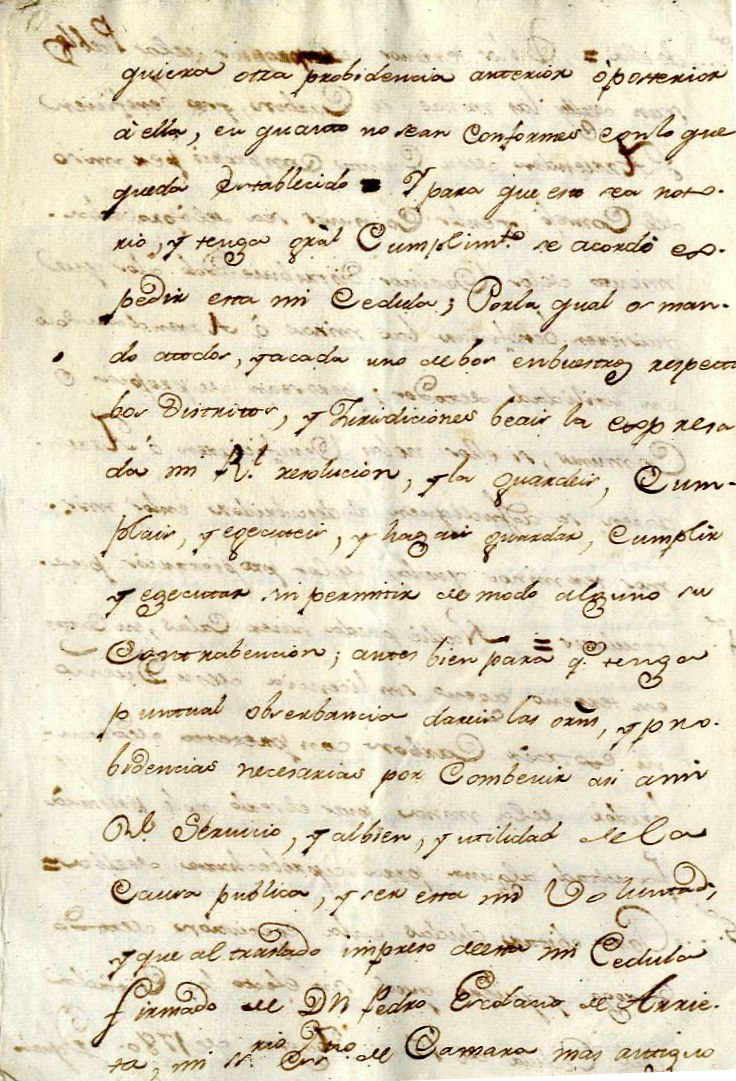 quiera otra probidencia anterior ò posterior
à ella, en quanto no sean Conformes con lo que
queda establecido = Y para que esto sea noto-
rio, y tenga gràl Cumplimto se acordó ex-
pedir esta mi Cedula; Porla qual os man-
do atodos, yacada uno de bos enbuestros respecti
bos Distritos, y Jurisdiciones beais la expresa
da mi Rl resolucion, yla guardeis, Cum-
plais, yegecuteis, y hagais guardar, Cumplir
y egecutar sin permitir de modo alguno su
Contrabencion; antes bien para q.e tenga
puntual obserbancia dareis las orns, y pro-
bidencias necesarias por Combenir asi ami
Rl Serbicio, y albien, y utilidad de la
Causa publica, y ser esta mi Voluntad;
y que al traslado impreso deesta mi Cedula
firmado de Dn Pedro Escolano de Arrie-
ta, mi Srio Essno de Camara mas antiguo